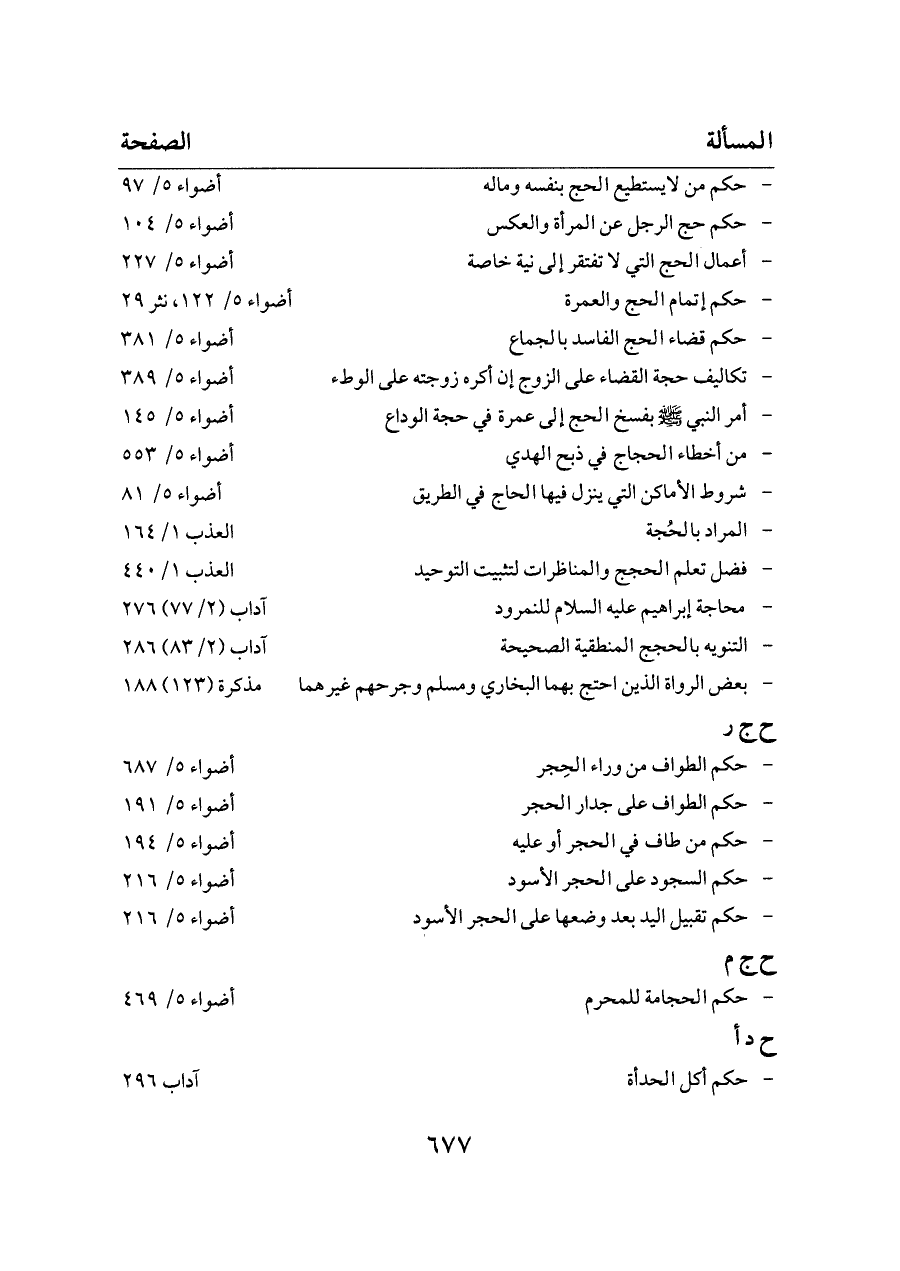 المسألة الصفحة
- حكم من لايستطيع الحج بنفسه وماله أضواء ٥/ ٩٧
- حكم حج الرجل عن المرأة والعكس أضواء ٥/ ١٠٤
- أعمال الحج التي لا تفتقر إلى نية خاصة أضواء ٥/ ٢٢٧
- حكم إتمام الحج والعمرة أضواء ٥/ ١٢٢، نثر ٢٩
- حكم قضاء الحج الفاسد بالجماع أضواء ٥/ ٣٨١
- تكاليف حجة القضاء على الزوج إن أكره زوجته على الوطء أضواء ٥/ ٣٨٩
- أمر النبي ﷺ بفسخ الحج إلى عمرة في حجة الوداع أضواء ٥/ ١٤٥
- من أخطاء الحجاج في ذبح الهدي أضواء ٥/ ٥٥٣
- شروط الأماكن التي ينزل فيها الحاج في الطريق أضواء ٥/ ٨١
- المراد بالحُجة العذب ١/ ١٦٤
- فضل تعلم الحجج والمناظرات لتثبيت التوحيد العذب ١/ ٤٤٠
- محاجة إبراهيم عليه السلام للنمرود آداب (٢/ ٧٧) ٢٧٦
- التنويه بالحجج المنطقية الصحيحة آداب (٢/ ٨٣) ٢٨٦
- بعض الرواة الذين احتج بهما البخاري ومسلم وجرحهم غيرهما مذكرة (١٢٣) ١٨٨
ح ج ر
- حكم الطواف من وراء الحِجر أضواء ٥/ ٦٨٧
- حكم الطواف على جدار الحجر أضواء ٥/ ١٩١
- حكم من طاف في الحجر أو عليه أضواء ٥/ ١٩٤
- حكم السجود على الحجر الأسود أضواء ٥/ ٢١٦
- حكم تقبيل اليد بعد وضعها على الحجر الأسود أضواء ٥/ ٢١٦
ح ج م
- حكم الحجامة للمحرم أضواء ٥/ ٤٦٩
ح د أ
- حكم أكل الحدأة آداب ٢٩٦
٦٧٧